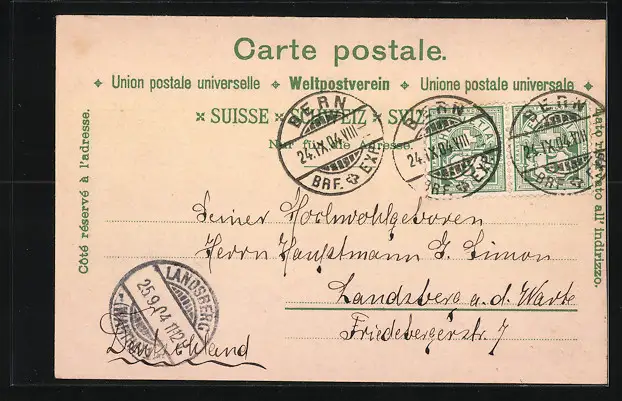 Carte postale.
Union postale universelle Weltpostverein Unione postale universale
SUISSE SCHWEIZ SVIZ
Nur für die Adresse.
Côté réservé à l'adresse.
lato riservato all'indirizzo.
BERN
24.IX.04.VIII
BRF. EXP.
BERN
24.IX.04.VIII
BRF. EXP.
BERN
24.IX.04.VIII
Seiner Hochwohlgeboren
Herrn Hauptmann G. Simon
Landsberg a. d. Warte
Friedebergerstr. 7
Deutschland
LANDSBERG
25.9.04
(WARTHE)